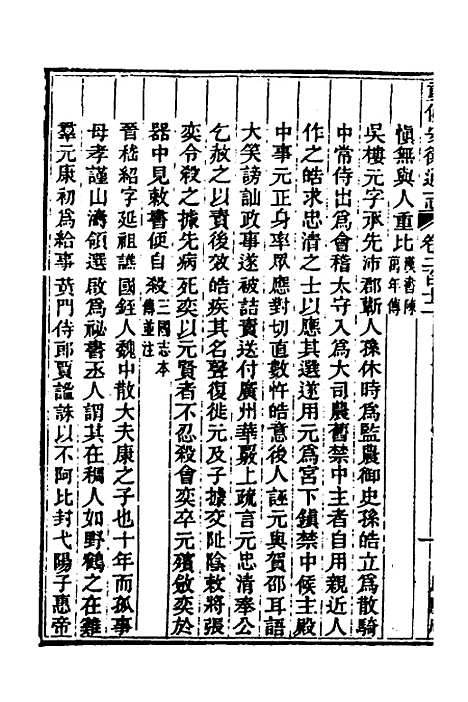 重修安徽通志 卷二百十二
愼無與人重比後漢書陳萬年傳
吳樓元字承先沛郡蘄人孫休時爲監農御史孫皓立爲散騎
中常侍出爲會稽太守入爲大司農舊禁中主者自用親近人
作之皓求忠清之士以應其選遂用元爲宮下鎮禁中候主殿
中事元正身率眾應對切直數忤皓意後人誣元與賀邵耳語
大笑謗訕政事遂被詰責送付廣州華覈上疏言元忠清奉公
乞赦之以責後效皓疾其名聲復徙元及子據交阯陰敕將張
奕令殺之據先病死奕以元賢者不忍殺會奕卒元殯斂奕於
器中見敕書便自殺三國志本傳並注
晉嵇紹字延祖譙國銍人魏中散大夫康之子也十年而孤事
母孝謹山濤領選啟爲祕書丞人謂其在稠人如野鶴之在雞
羣元康初爲給事黃門侍郎賈謐誅以不阿比封弋陽子惠帝